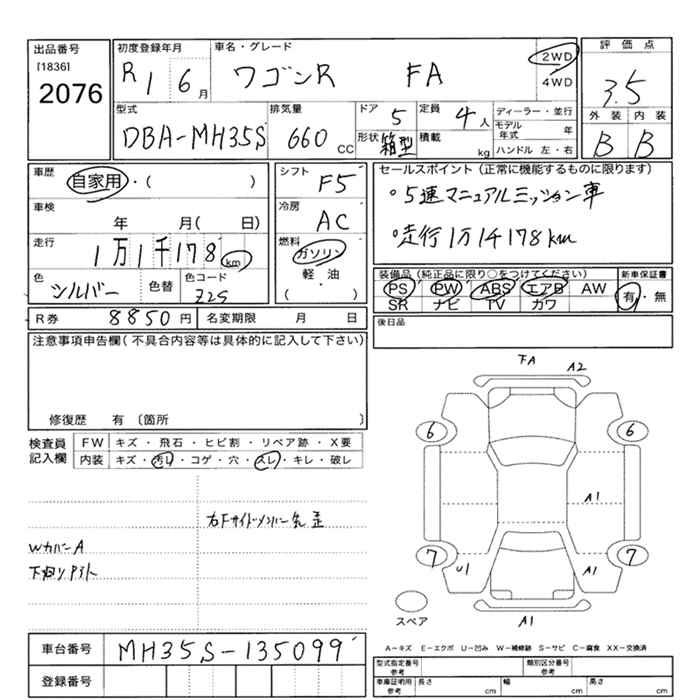 出品番号
[1836]
2076
初度登録年月
R 1 6月
車名・グレード
ワゴンR FA
2WD
4WD
評価点
3.5
外装 内装
B B
型式
DBA-MH35S
排気量
660 CC
ドア 5
形状 箱型
定員 4人
積載 kg
ディーラー・並行
モデル年式 年
ハンドル 左・右
車歴 自家用・( )
シフト F5
車検 年 月( 日)
冷房 AC
走行 1万1千178 km
燃料 ガソリン
軽・油
( )
色 シルバー
色替
色コード Z2S
セールスポイント(正常に機能するものに限ります)
○5速マニュアルミッション車
○走行1万1千178km
装備品(純正品に限り○をつけてください)
PS PW ABS エアB AW
SR ナビ TV カワ
新車保証書
有・無
R券 8850円
名変期限 月 日
後日品
注意事項申告欄(不具合内容等は具体的に記入して下さい)
修復歴 有(箇所 )
検査員記入欄
FW キズ・飛石・ヒビ割・リペア跡・X要
内装 キズ・汚レ・コゲ・穴・スレ・キレ・破レ
右Fサイドメンバー先 歪
WカバーA
下廻りサビ
FA A2
6 6
A1
7 7
U1 A1
スペア
A1
A-キズ E-エクボ U-凹み W-補修跡 S-サビ C-腐食 XX-交換済
車台番号 MH35S-135099
登録番号
型式指定番号 参考
類別区分番号 参考
車庫証明用 参考
長さ cm 幅 cm 高さ cm